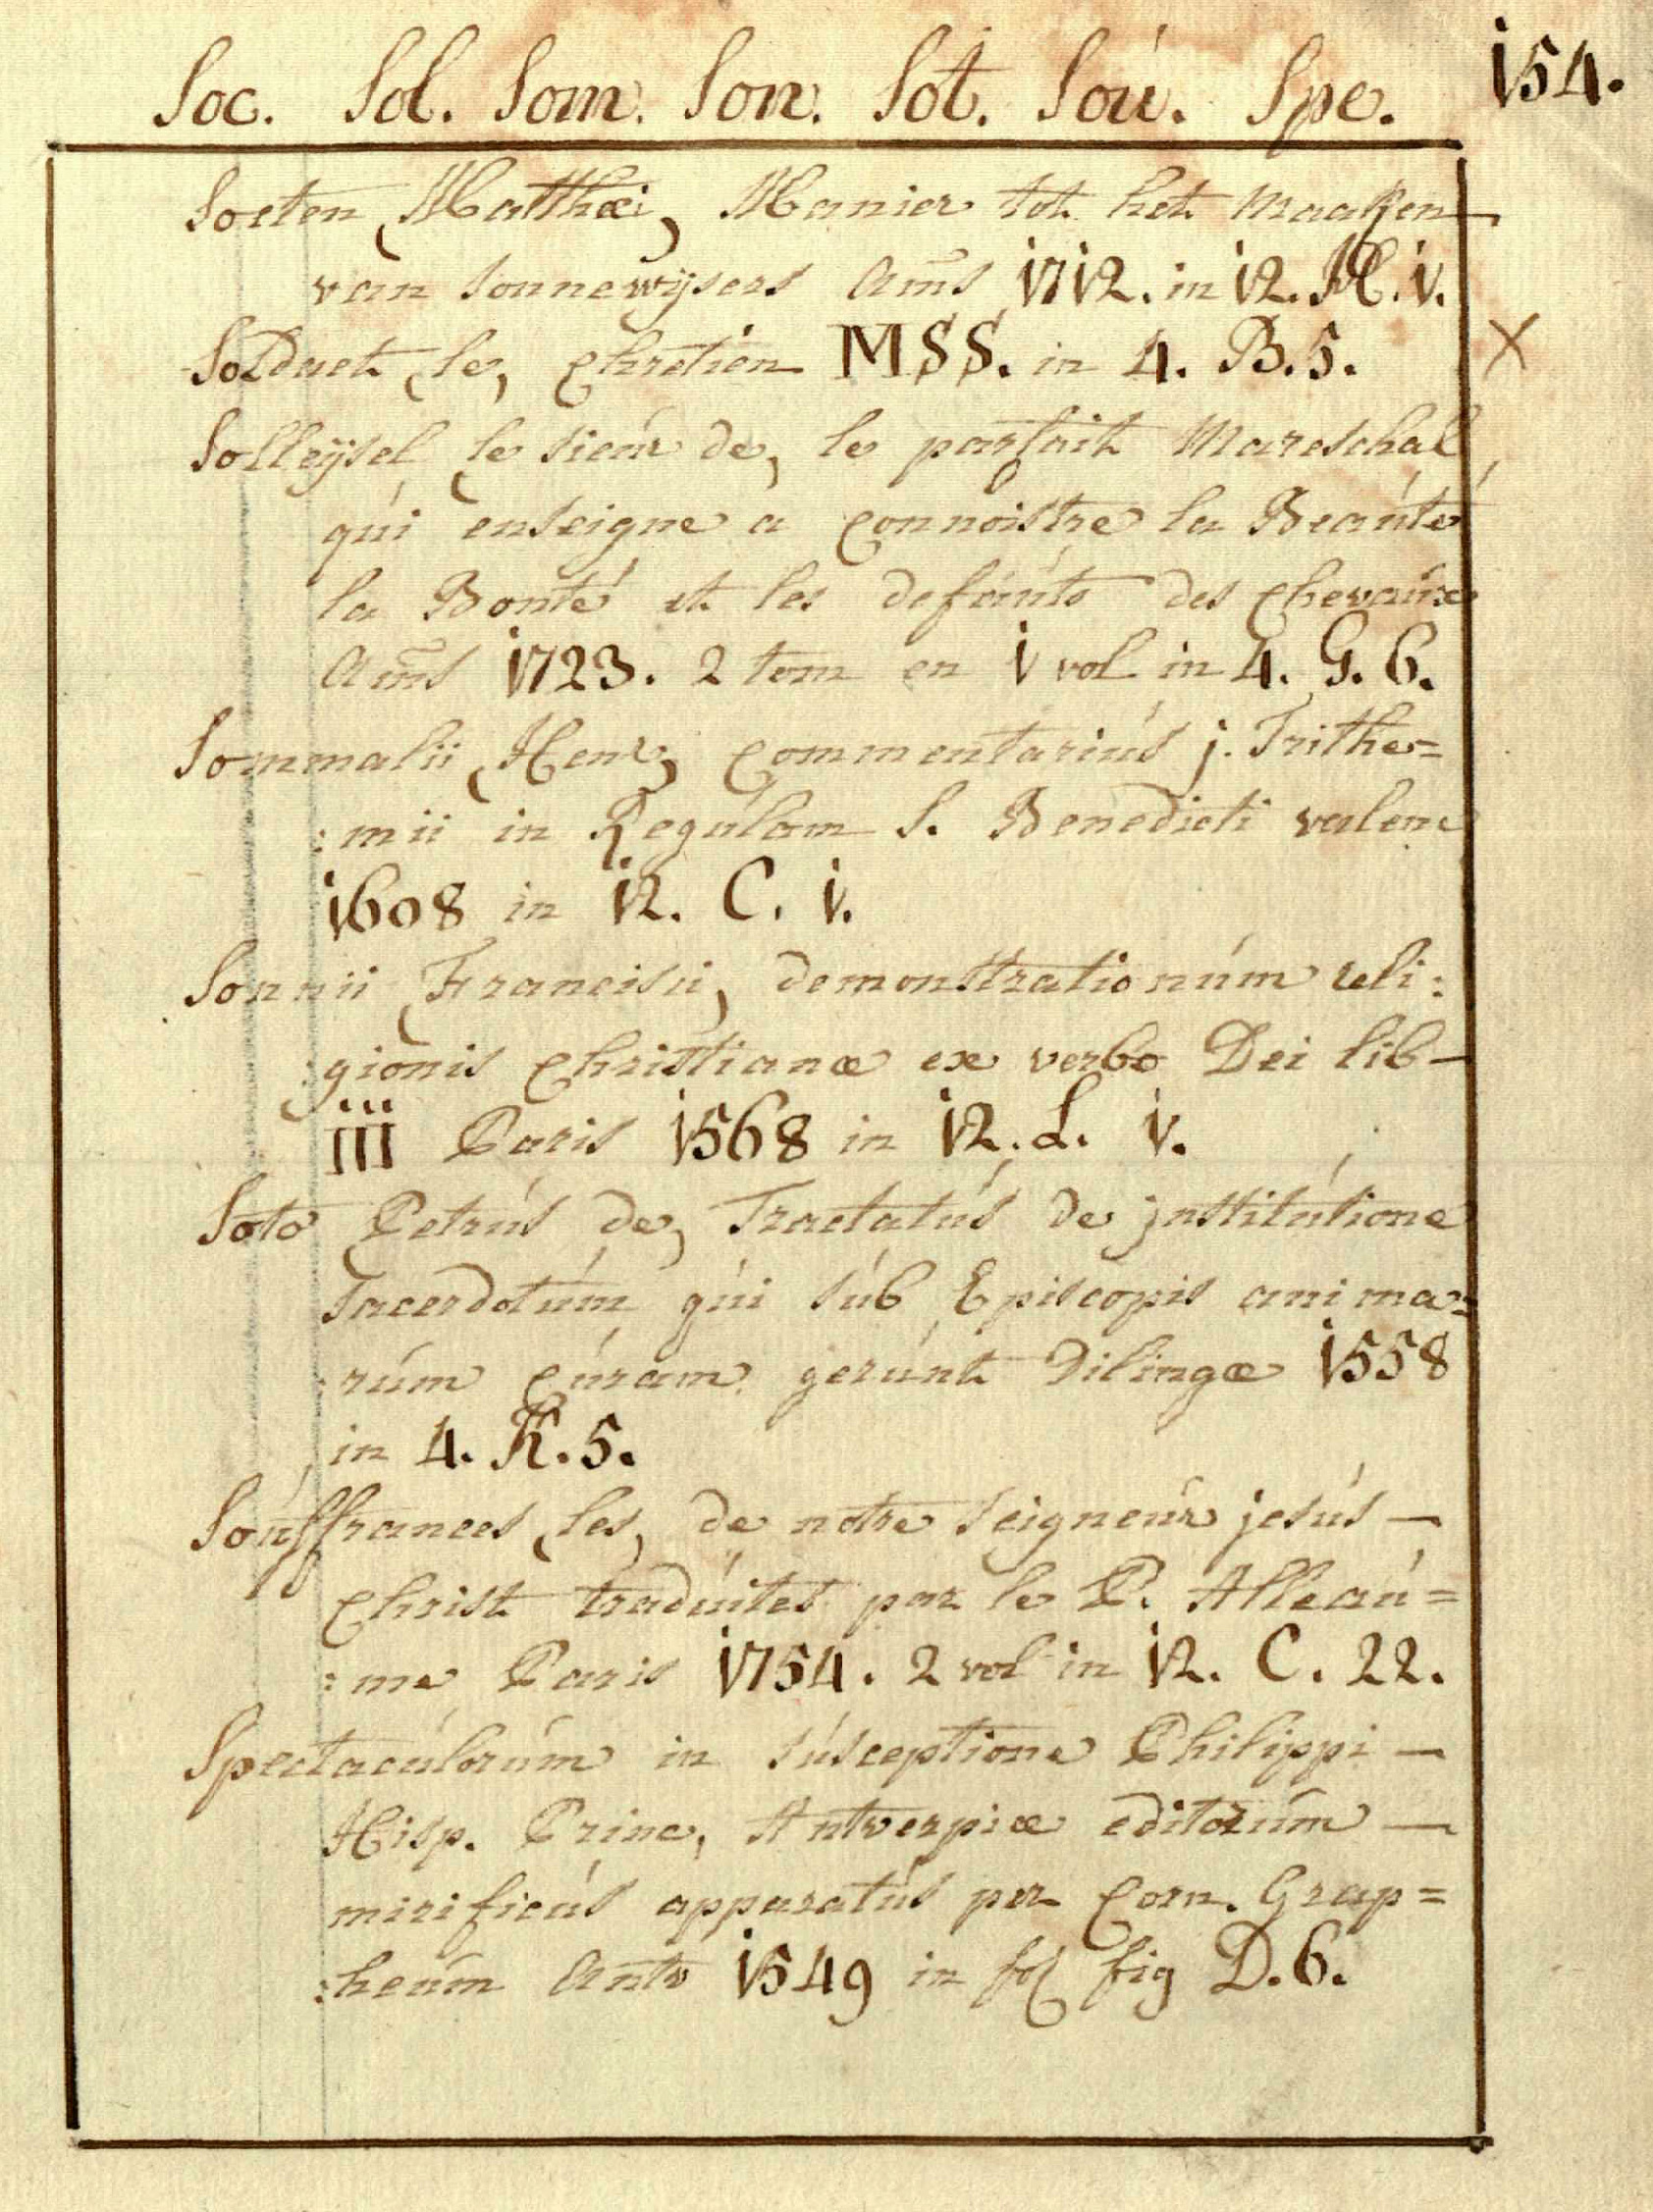 Soc. Sol. Som. Son. Sot. Soú. Spe. 154.
Soeten (Matthæi) Manier tot het maaken
van sonnewÿsers Ams 1712. in 12. H. 1.
Solduet (le) chretien MSS. in 4. B. 5. X
Solleÿsel (le sieúr de) le parfait Mareschal
qúi enseigne a connoistre la Beaúté
la Bonté et les defaúts des chevaúx
Ams 1723. 2 tom en 1 vol in 4. G. 6.
Sommalii (Henr) commentariús j. Trithe=
:mii in Regúlam S. Benedicti valenc
1608 in 12. C. 1.
Sonnii (Francisci) demonstrationúm reli:
:gionis christianæ ex verbo Dei lib—
III Paris 1568 in 12. L. 1.
Soto (Petrús de) Tractatús de jnstitútione
Sacerdotúm qúi súb Episcopis anima=
:rúm cúram gerúnt Dilingæ 1558
in 4. K. 5.
Soúffrances (les) de notre seigneúr jesús —
christ tradúites par le P. Alleaú=
:me Paris 1754. 2 vol in 12. C. 22.
Spectacúlorúm in súsceptione Philippi —
Hisp. Princ. Antverpiæ editorúm —
mirificús apparatús per Corn. Grap=
:heúm Antv 1549 in fol fig D. 6.